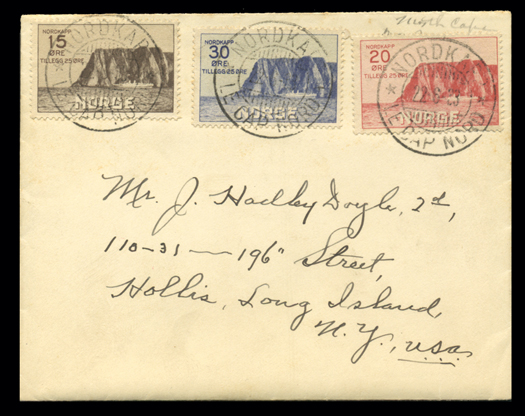 North Cape
NORDKAPP
15
ØRE
TILLEGG 25 ØRE
NORGE
NORDKAPP
30
ØRE
TILLEGG 25 ØRE
NORGE
NORDKAPP
20
ØRE
TILLEGG 25 ØRE
NORGE
NORDKAPP
LE CAP NORD
NORDKAPP
LE CAP NORD
NORDKAPP
LE CAP NORD
Mr. J. Hadley Doyle, 2d,
110-31 — 196" Street,
Hollis, Long Island,
N.Y., USA